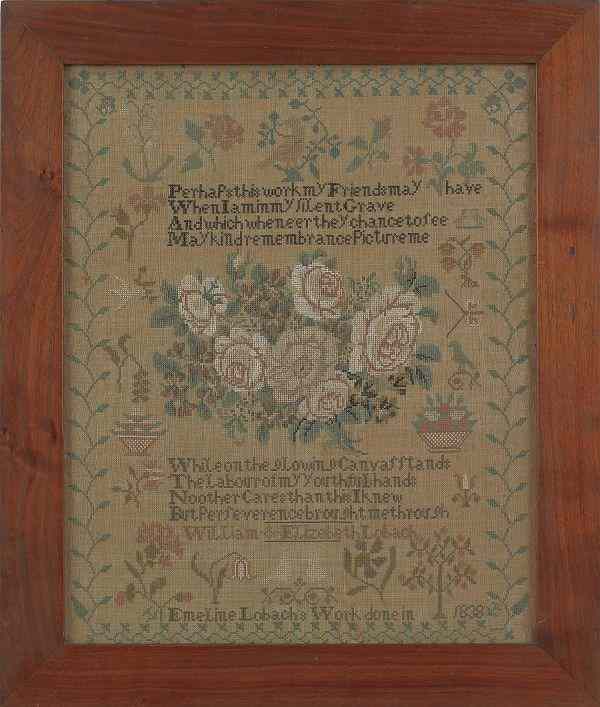 Perhaps this work my Friends may have
When I am in my silent Grave
And which wheneer they chance to see
May kind remembrance Picture me
While on the Glowing Canvas stands
The Labour of my youthful hands
No other Cares than this I knew
But Perseverence brought me through
William & Elizebeth Lobach
Emeline Lobachs Work done in 1838